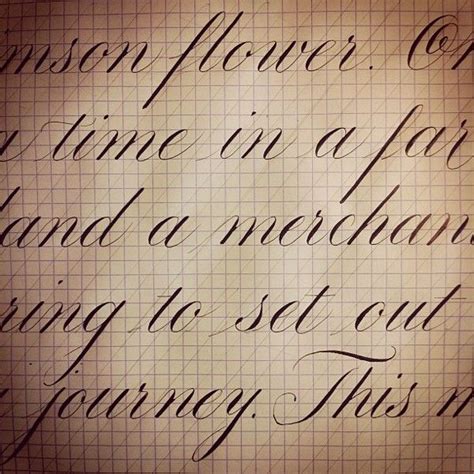 mson flower. On
a time in a far
land a merchan
ring to set out
journey. This m